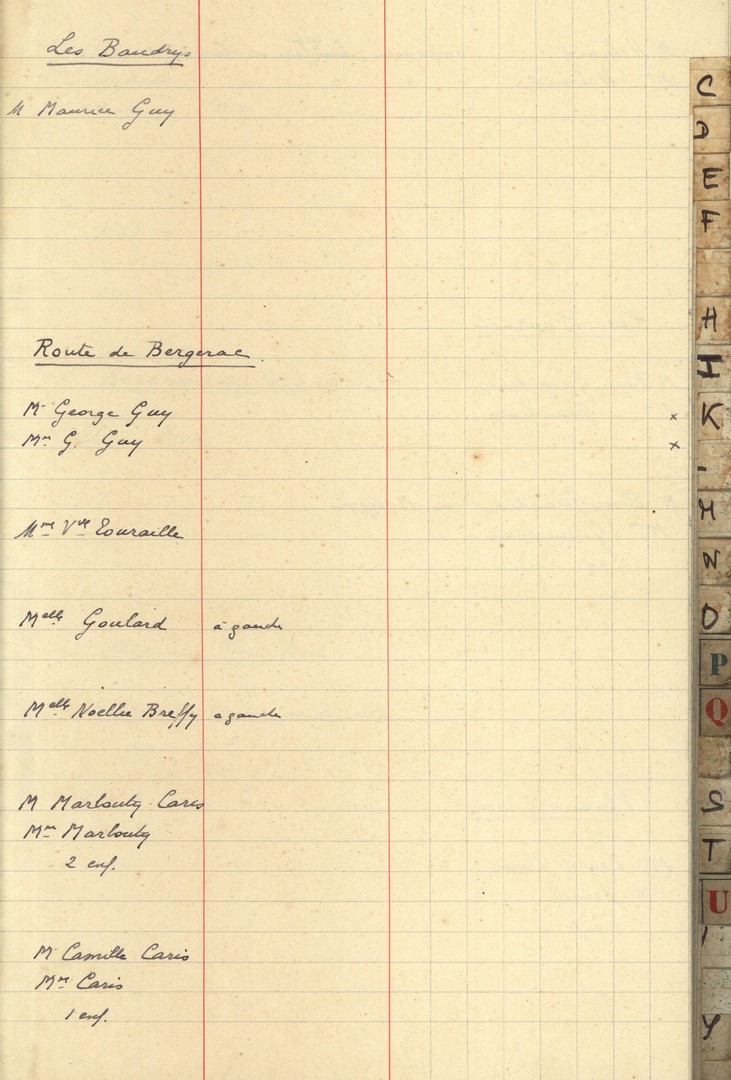 Les Baudrys
M Maurice Guy
Route de Bergerac.
Mr George Guy
Mme G. Guy
x
x
Mme Vve Touraille
Melle Goulard à gauche
Melle Noellie Breffy a gauche
M Marbouty-Caris
Mme Marbouty
2 enf.
M Camille Caris
Mme Caris
1 enf.
C
D
E
F
H
I
K
M
N
O
P
Q
S
T
U
Y